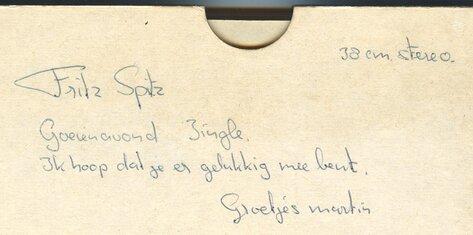 38 cm. stereo.
Fritz Spitz
Goeienavond Jingle.
Ik hoop dat je er gelukkig mee bent.
Groetjes martin